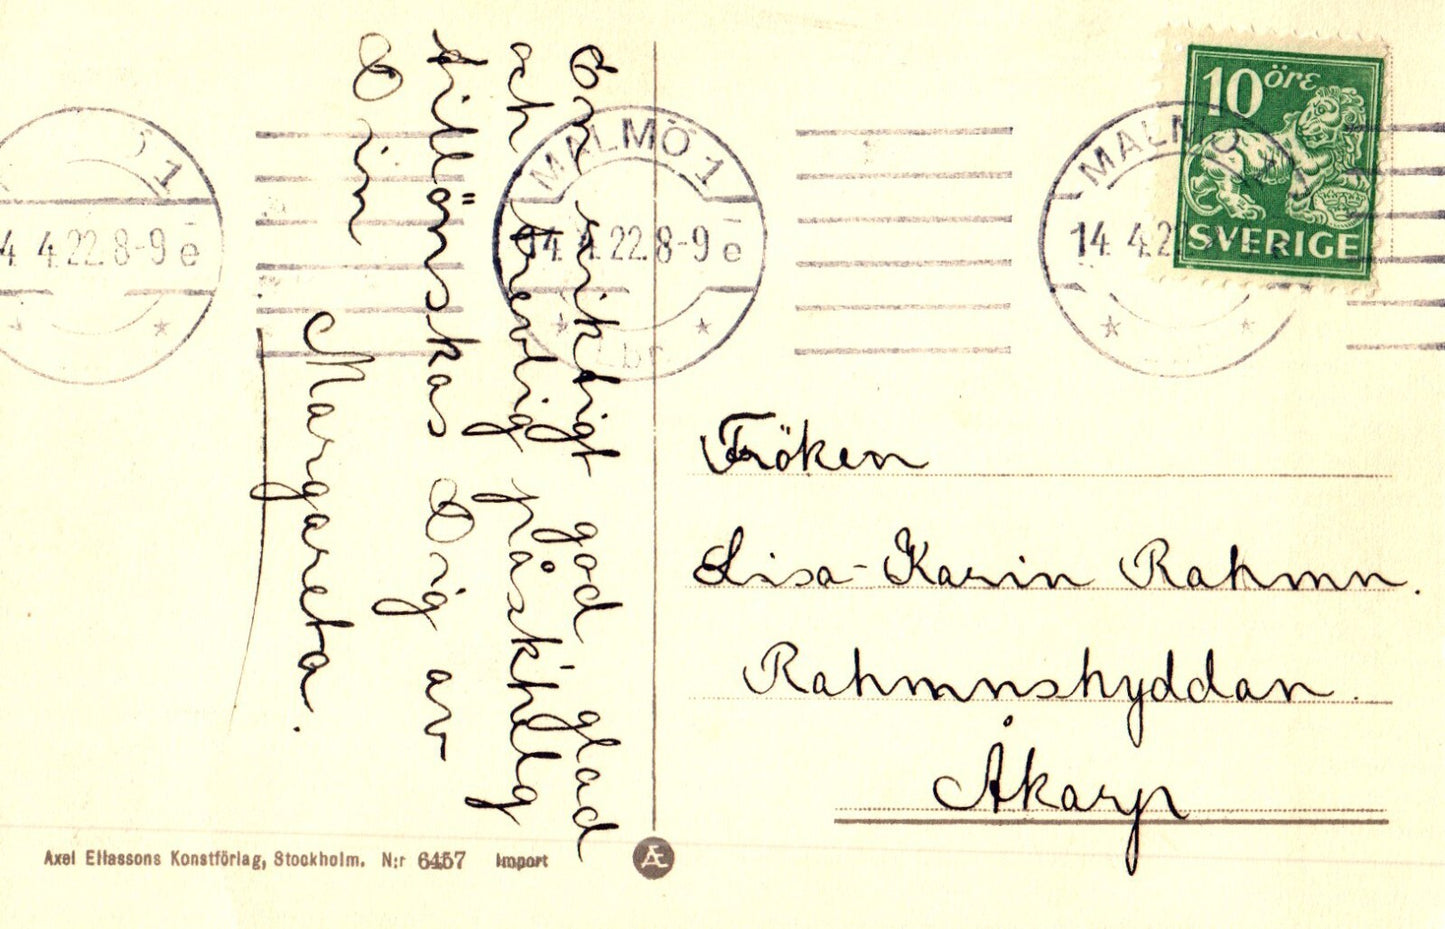 En riktigt god glad
och trevlig påskhelg
tillönskas Dig av
Din
Margareta.
Fröken
Lisa-Karin Rahmn.
Rahmnshyddan.
Åkarp
10 öre
SVERIGE
1
4 4.22.8-9 e
MALMÖ 1
14 4.22.8-9 e
MALMÖ 1
14 4.22
Axel Eliassons Konstförlag, Stockholm. N:r 6457 Import
Æ